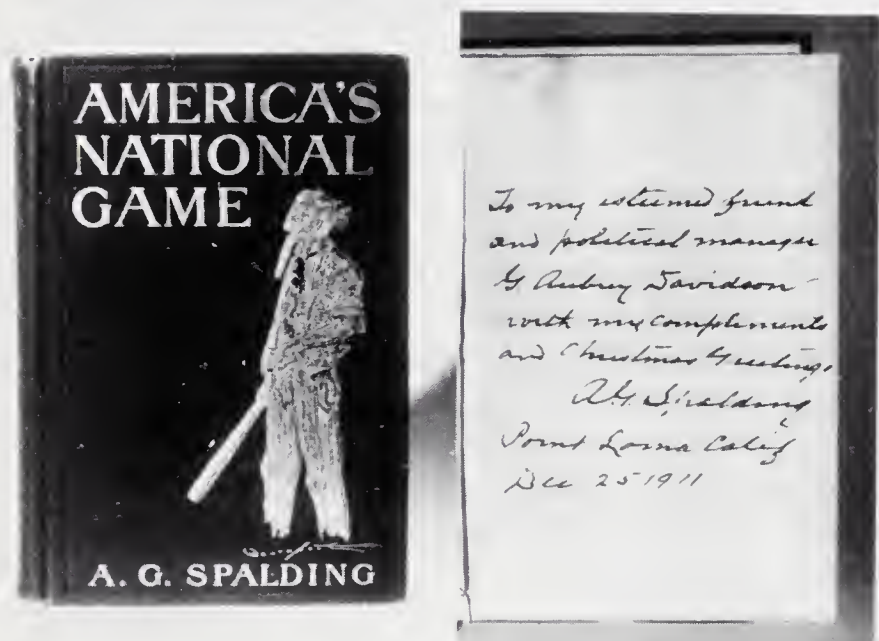 AMERICA'S
NATIONAL
GAME
A. G. SPALDING
To my esteemed friend
and political manager
G Aubrey Davidson
with my compliments
and Christmas Greetings
A.G. Spalding
Point Loma Calif
Dec 25 1911